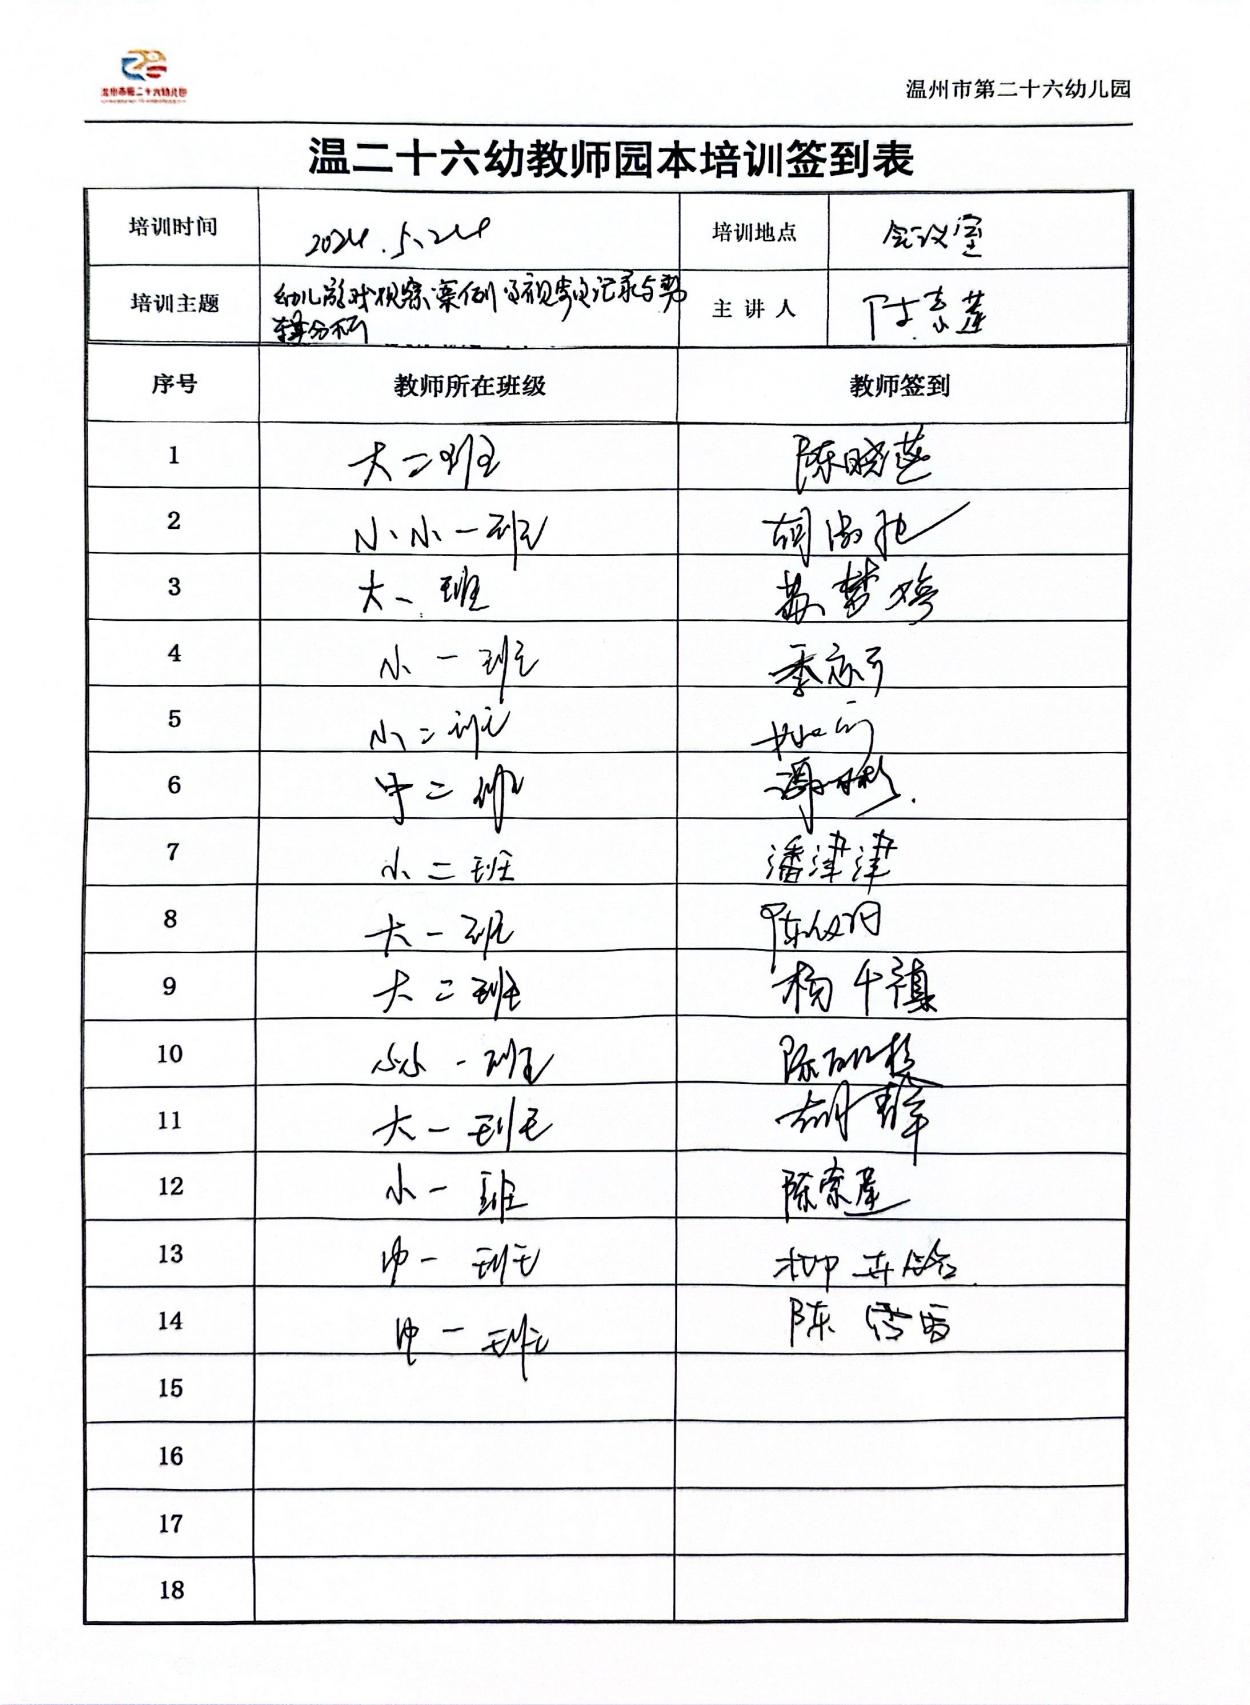 温州市第二十六幼儿园
温州市第二十六幼儿园
温二十六幼教师园本培训签到表
培训时间 2024.5.24 培训地点 会议室
培训主题 幼儿游戏观察案例 记录与
分析 主讲人 陈素莲
序号 教师所在班级 教师签到
1 大二班 陈晓燕
2 小小一班 胡
3 大一班 苏梦婷
4 小一班 季
5 小二班
6 中二班 谭
7 小二班 潘津津
8 大一班 陈
9 大二班 杨千禛
10 小小一班 陈
11 大一班 胡静
12 小一班 陈
13 中一班 柳
14 中一班 陈
15
16
17
18